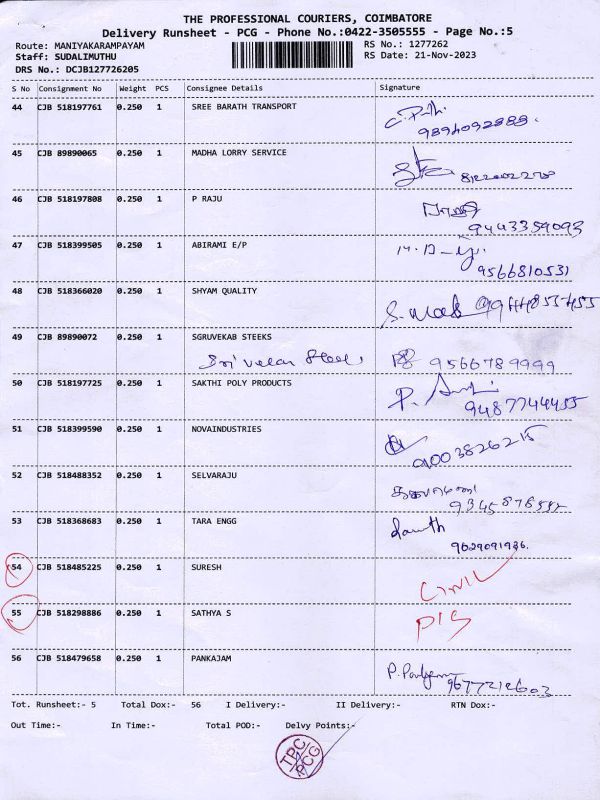 THE PROFESSIONAL COURIERS, COIMBATORE
Delivery Runsheet - PCG - Phone No.:0422-3505555 - Page No.:5
Route: MANIYAKARAMPAYAM RS No.: 1277262
Staff: SUDALIMUTHU RS Date: 21-Nov-2023
DRS No.: DCJB127726205
S No Consignment No Weight PCS Consignee Details Signature
44 CJB 518197761 0.250 1 SREE BARATH TRANSPORT
9894092888.
45 CJB 89890065 0.250 1 MADHA LORRY SERVICE
46 CJB 518197808 0.250 1 P RAJU
9443359093
47 CJB 518399505 0.250 1 ABIRAMI E/P
9566810531
48 CJB 518366020 0.250 1 SHYAM QUALITY
49 CJB 89890072 0.250 1 SGRUVEKAB STEEKS
Sri Velan Steel, 9566789999
50 CJB 518197725 0.250 1 SAKTHI POLY PRODUCTS
9487744455
51 CJB 518399590 0.250 1 NOVAINDUSTRIES
9003826215
52 CJB 518488352 0.250 1 SELVARAJU
53 CJB 518368683 0.250 1 TARA ENGG
9629091936.
54 CJB 518485225 0.250 1 SURESH
55 CJB 518298886 0.250 1 SATHYA S
56 CJB 518479658 0.250 1 PANKAJAM
Tot. Runsheet:- 5 Total Dox:- 56 I Delivery:- II Delivery:- RTN Dox:-
Out Time:- In Time:- Total POD:- Delvy Points:-
TPC
PCG